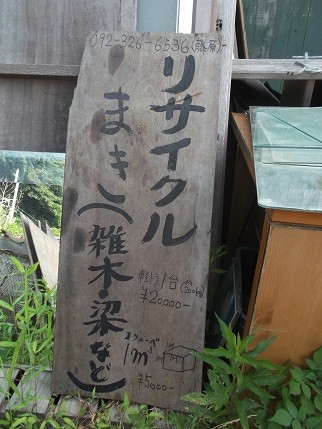 092-326-6536(藤原)
リサイクル
まき(雑木・梁など)
軽トラ1台
¥20000-
1m³
¥5000-